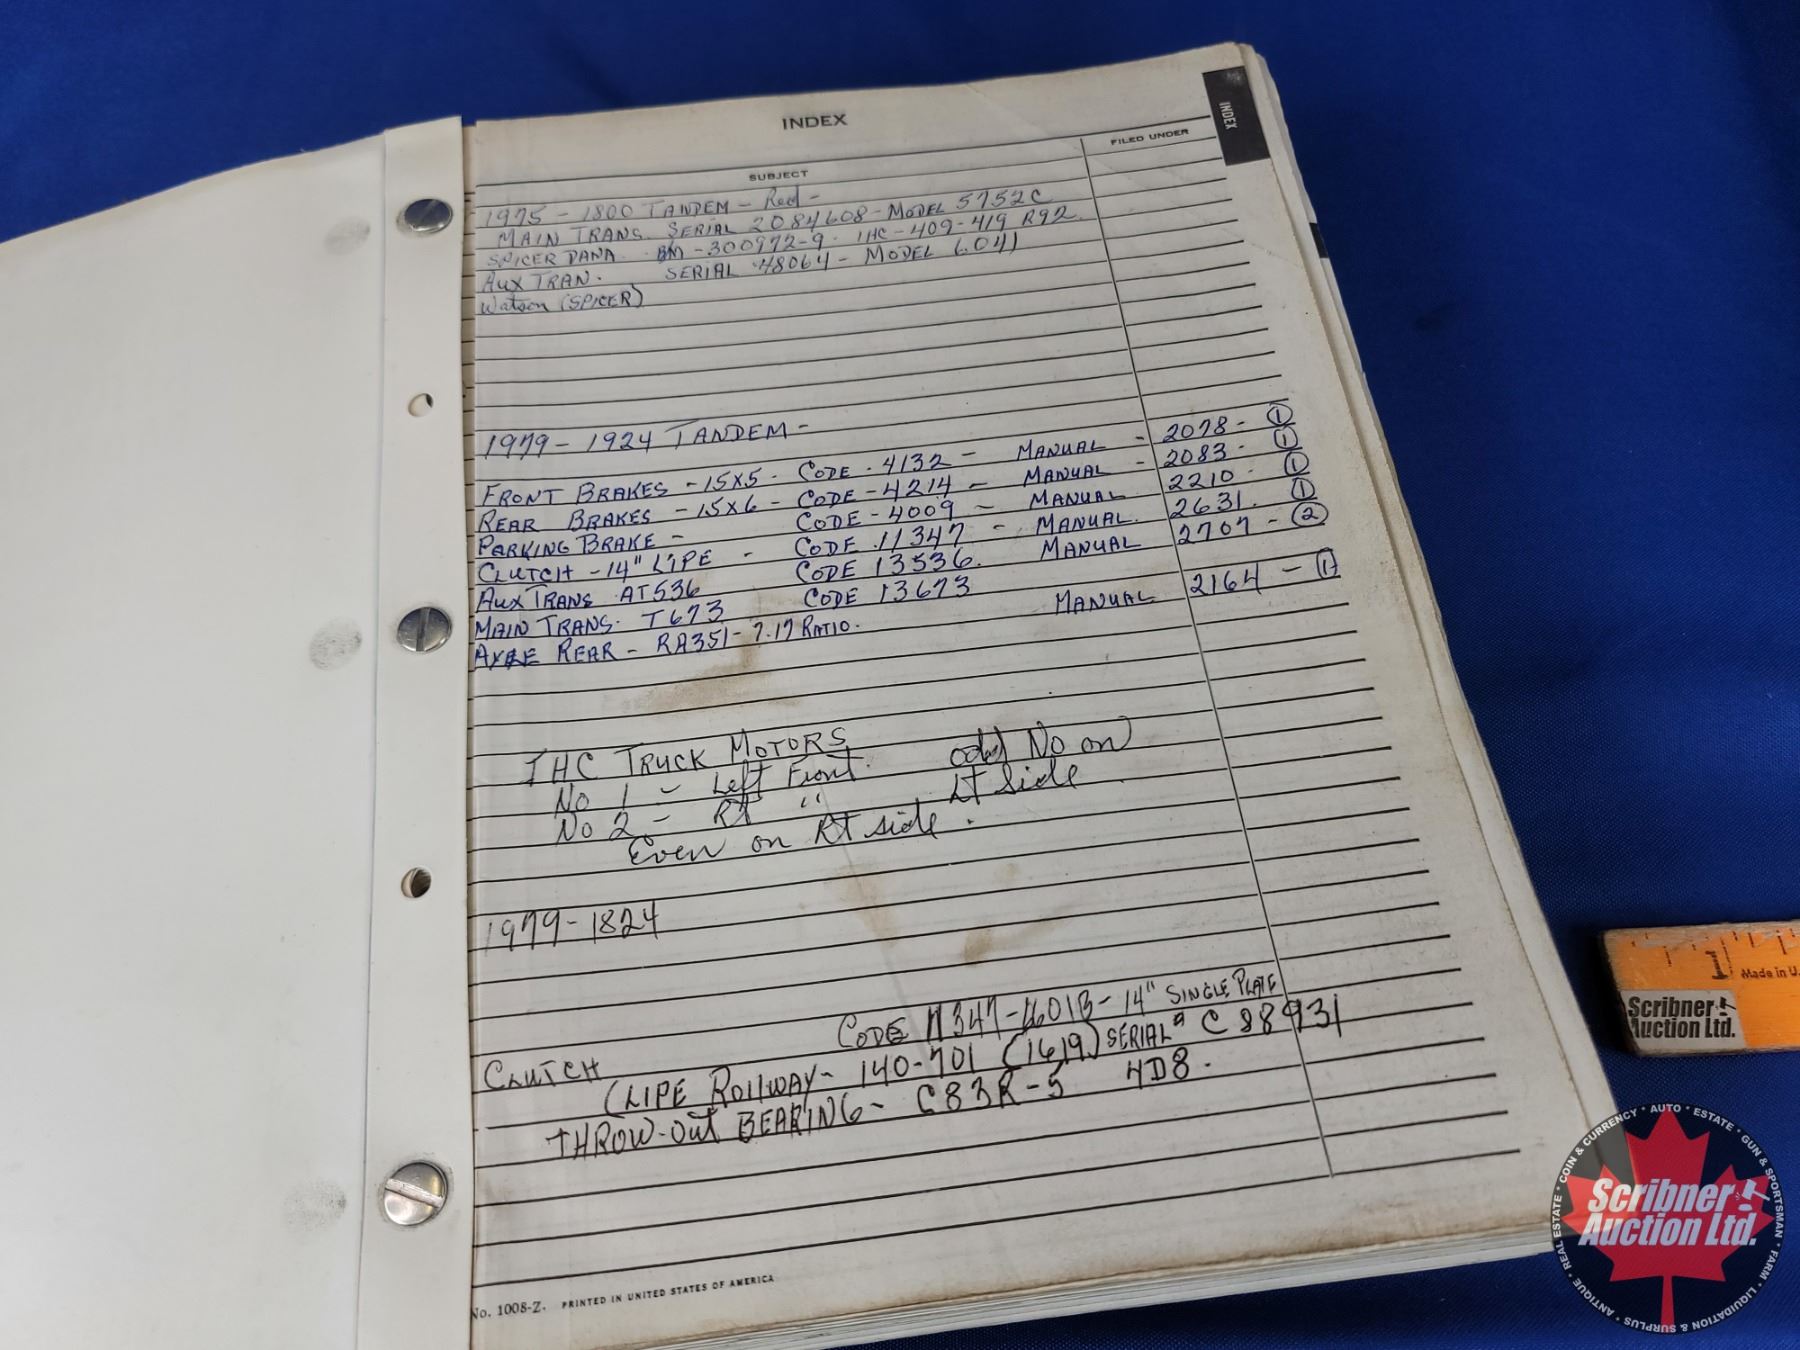 INDEX
INDEX
SUBJECT
FILED UNDER
1975 - 1800 TANDEM - Red -
MAIN TRANS. SERIAL 2084608 - MODEL 5752C
SPICER DANA. BM - 300972-9. IHC - 409-419 R92
AUX TRAN. SERIAL 48064 - MODEL 6041
Watson (SPICER)
1979 - 1924 TANDEM -
FRONT BRAKES - 15X5 - CODE - 4132 - MANUAL - 2078 - 1
REAR BRAKES - 15X6 - CODE - 4214 - MANUAL - 2083 - 1
PARKING BRAKE - CODE - 4009 - MANUAL - 2210 - 1
CLUTCH - 14" LIPE - CODE . 11347 - MANUAL. 2631. 1
AUX TRANS AT536 CODE 13536. MANUAL 2707 - 2
MAIN TRANS. T673 CODE 13673
AXLE REAR - RA351 - 7.17 RATIO. MANUAL 2164 - 1
IHC TRUCK MOTORS
No 1 - Left Front. odd No on
No 2 - Rt " Lt Side
Even on Rt side.
1979 - 1824
CODE 11347-1601B - 14" SINGLE PLATE
CLUTCH (LIPE ROllWAY - 140-701 (1619) SERIAL # C 88931
THROW-Out BEARING - C83R-5 4D8.
No. 1008-Z. PRINTED IN UNITED STATES OF AMERICA
1
Made in U.
Scribner
Auction Ltd.
Scribner
Auction Ltd.
ANTIQUE • REAL ESTATE • COIN & CURRENCY • AUTO • ESTATE • GUN & SPORTSMAN • FARM • LIQUIDATION & SURPLUS •